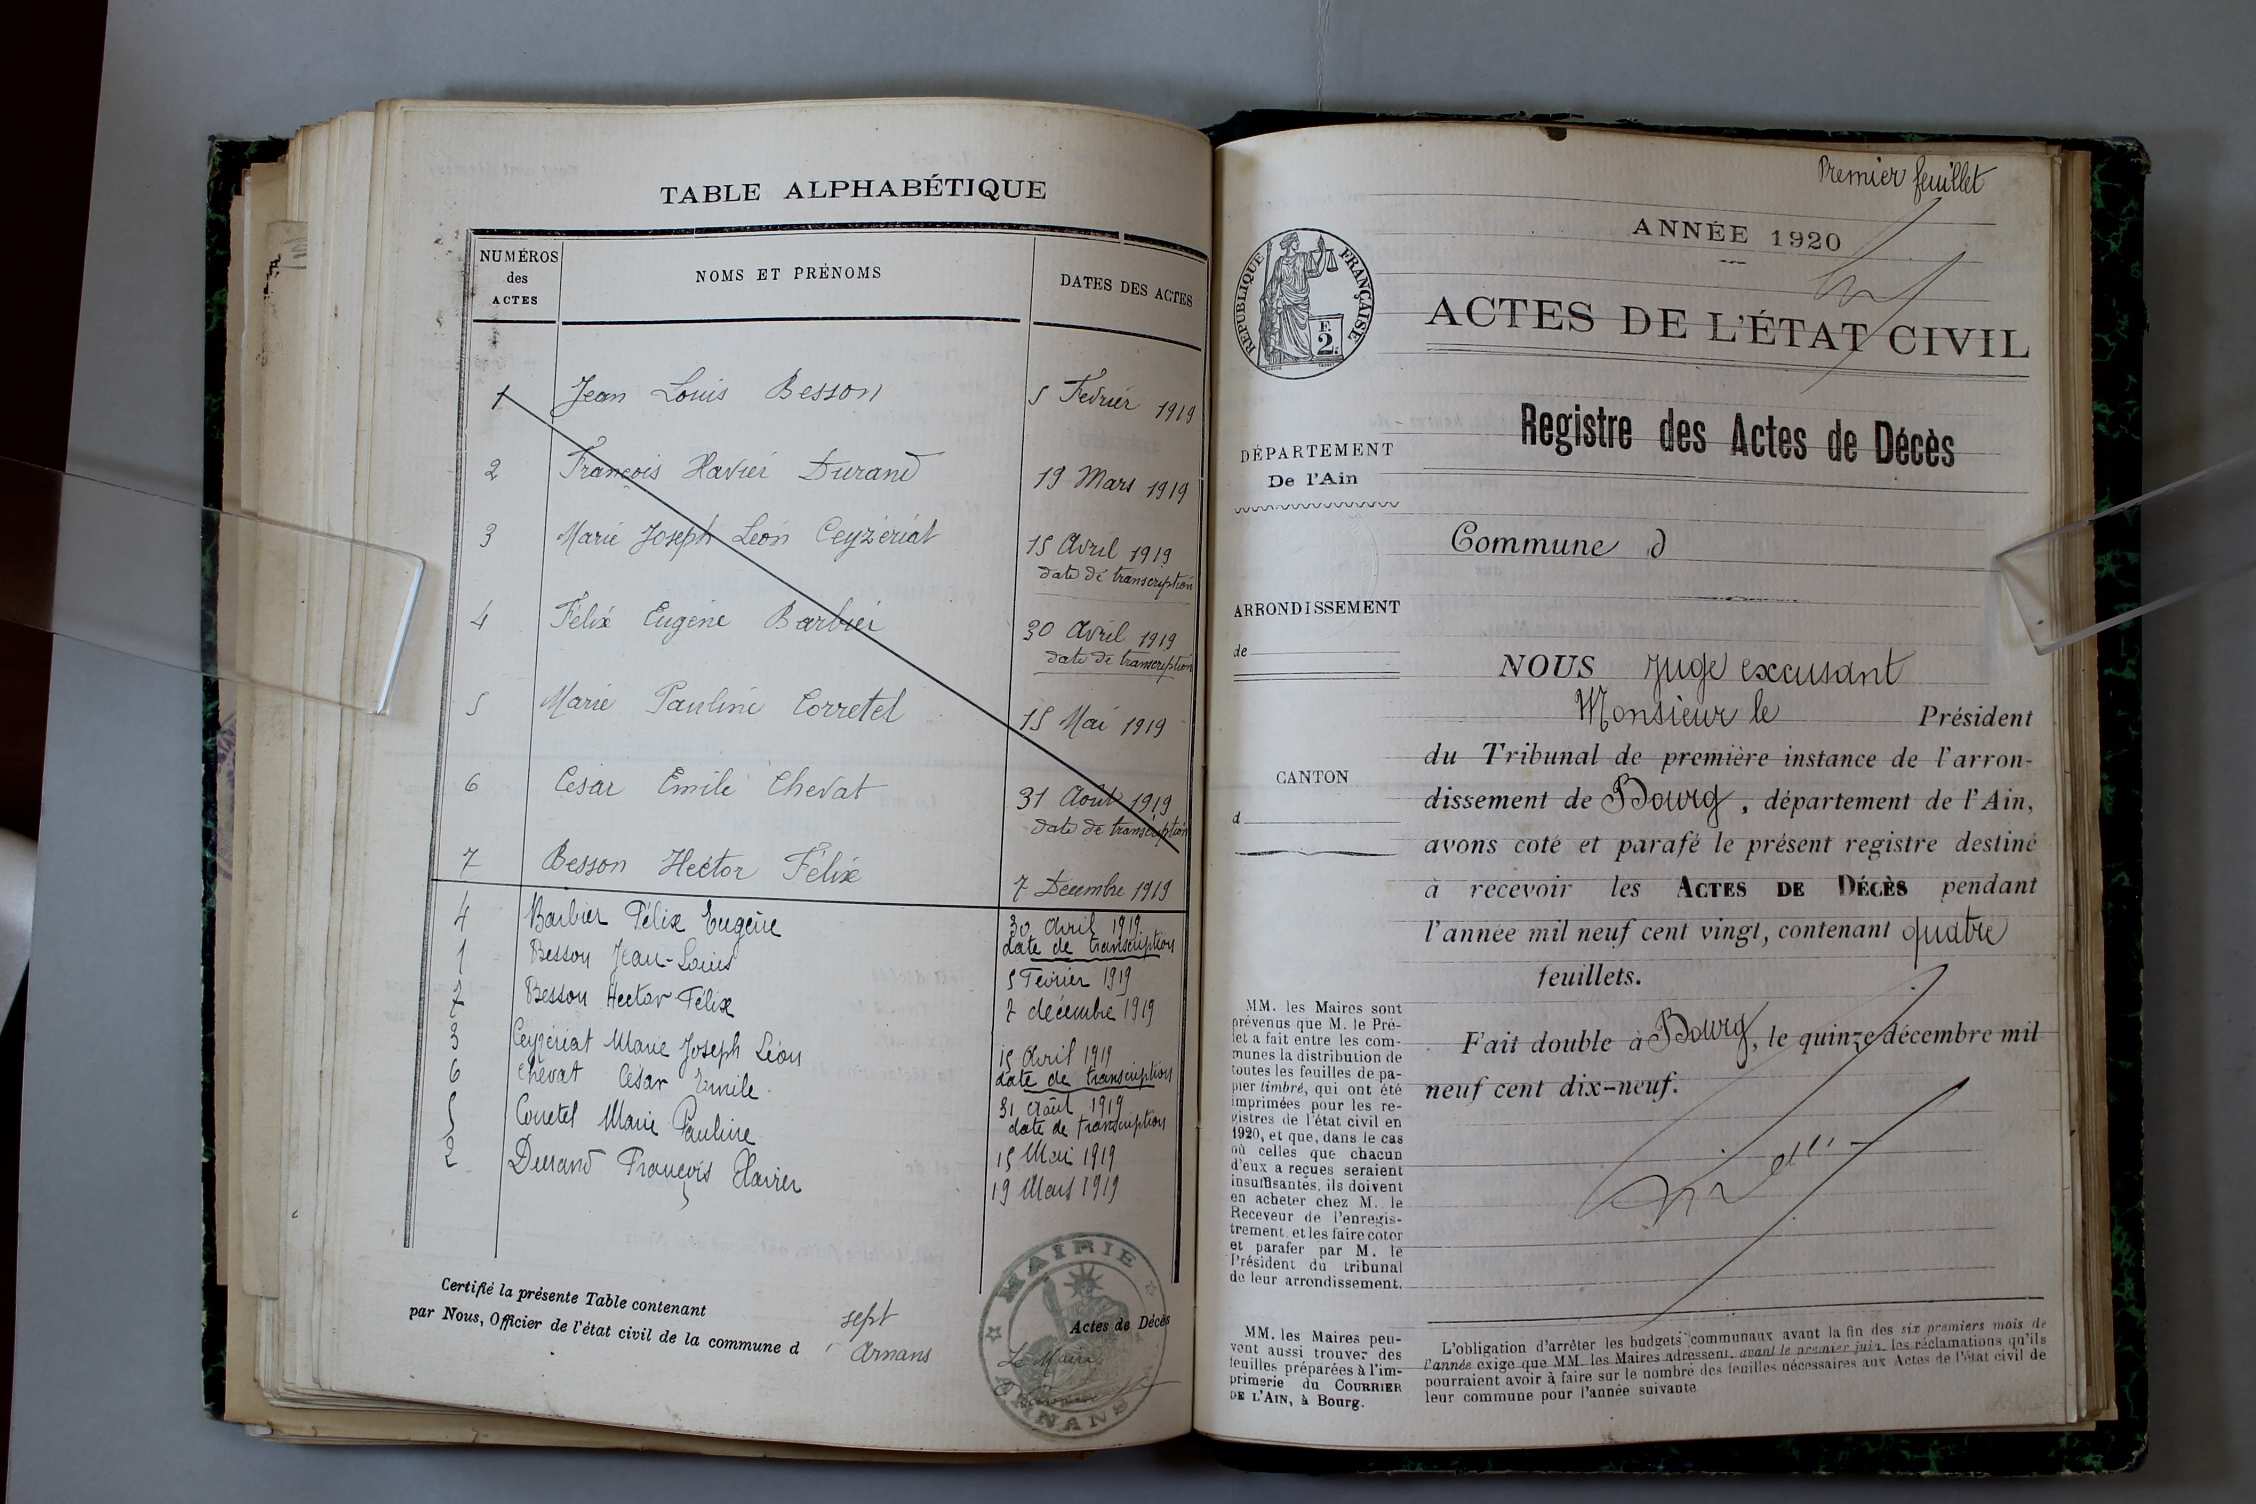 TABLE ALPHABÉTIQUE
NUMÉROS
des
ACTES
NOMS ET PRÉNOMS
DATES DES ACTES
1 Jean Louis Besson 5 Fevrier 1919
2 François Xavier Durand 19 Mars 1919
3 Marie Joseph Léon Ceyzériat 15 Avril 1919
date de transcription
4 Félix Eugène Barbier 30 Avril 1919
date de transcription
5 Marie Pauline Corretel 15 Mai 1919
6 César Emile Chevat 31 Août 1919
date de transcription
7 Besson Hector Félix 7 Decembre 1919
4 Barbier Félix Eugène 30 Avril 1919
date de transcription
1 Besson Jean-Louis 5 Fevrier 1919
7 Besson Hector Félix 7 décembre 1919
3 Ceyzériat Marie Joseph Léon 15 Avril 1919
date de transcription
6 Chevat César Emile 31 Août 1919
date de transcription
5 Corretel Marie Pauline 15 Mai 1919
2 Durand François Xavier 19 Mars 1919
Certifié la présente Table contenant sept Actes de Décès
par Nous, Officier de l'état civil de la commune d' Arnans
Le Maire
MAIRIE
ARNANS
Premier feuillet
ANNÉE 1920
RÉPUBLIQUE FRANÇAISE
F.
2.
ACTES DE L'ÉTAT CIVIL
Registre des Actes de Décès
DÉPARTEMENT
De l'Ain
Commune d
ARRONDISSEMENT
de
CANTON
d
NOUS Juge excusant
Monsieur le Président
du Tribunal de première instance de l'arron-
dissement de Bourg, département de l'Ain,
avons coté et parafé le présent registre destiné
à recevoir les ACTES DE DÉCÈS pendant
l'année mil neuf cent vingt, contenant quatre
feuillets.
Fait double à Bourg, le quinze décembre mil
neuf cent dix-neuf.
MM. les Maires sont
prévenus que M. le Pré-
fet a fait entre les com-
munes la distribution de
toutes les feuilles de pa-
pier timbré, qui ont été
imprimées pour les re-
gistres de l'état civil en
1920, et que, dans le cas
où celles que chacun
d'eux a reçues seraient
insuffisantes, ils doivent
en acheter chez M. le
Receveur de l'enregis-
trement, et les faire coter
et parafer par M. le
Président du tribunal
de leur arrondissement.
MM. les Maires peu-
vent aussi trouver des
feuilles préparées à l'im-
primerie du COURRIER
DE L'AIN, à Bourg.
L'obligation d'arrêter les budgets communaux avant la fin des six premiers mois de
l'année exige que MM. les Maires adressent, avant le premier juin, les réclamations qu'ils
pourraient avoir à faire sur le nombre des feuilles nécessaires aux Actes de l'état civil de
leur commune pour l'année suivante